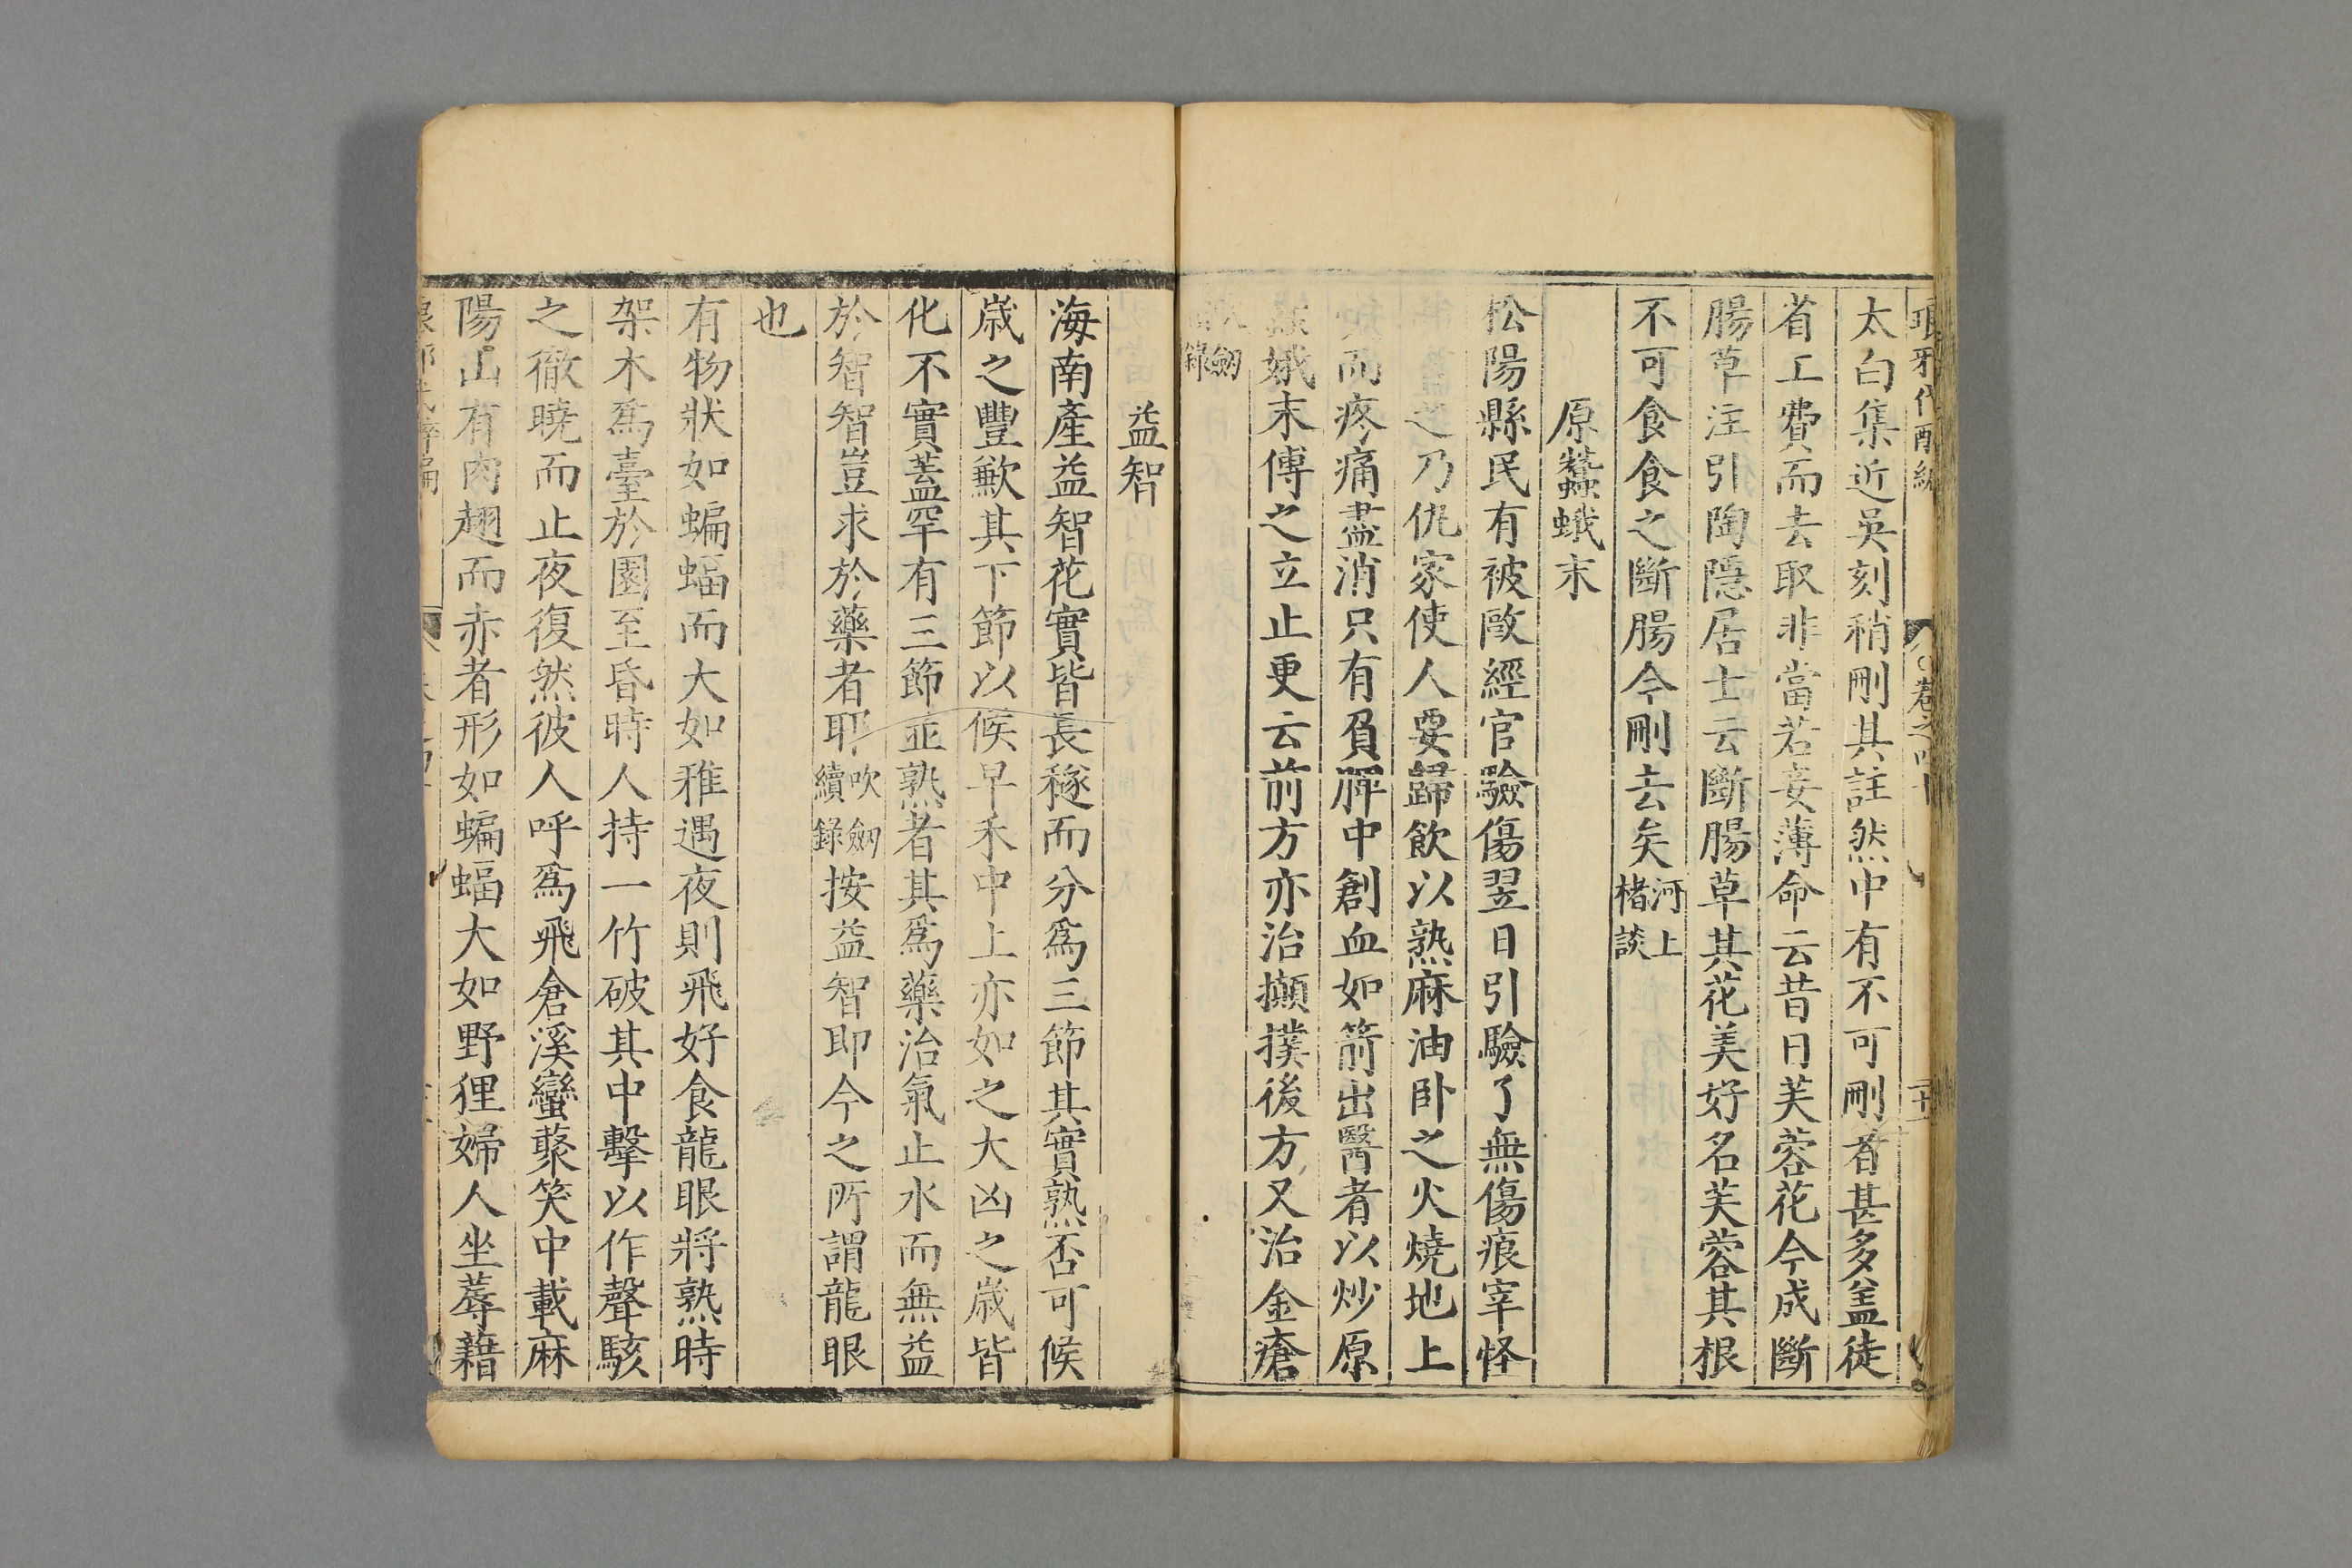 太白集近吳刻稍刪其註然中有不可刪者甚多盖徒
省工費而去取非當若妾薄命云昔日芙蓉花今成斷
腸草注引陶隱居士云斷腸草其花美好名芙蓉其根
不可食食之斷腸今刪去矣河上楮談
原蠶蛾末
松陽縣民有被毆經官驗傷翌日引驗了無傷痕宰怪
之乃仇家使人要歸飲以熟麻油卧之火燒地上
而疼痛盡消只有負脾中創血如箭出醫者以炒原
蛾末傅之立止更云前方亦治攧撲後方又治金瘡
劒錄
益智
海南產益智花實皆長穟而分爲三節其實熟否可候
歲之豐歉其下節以候早禾中上亦如之大凶之歲皆
化不實蓋罕有三節並熟者其爲藥治氣止水而無益
於智智豈求於藥者耶吹劒續錄按益智即今之所謂龍眼
也
有物狀如蝙蝠而大如雅遇夜則飛好食龍眼將熟時
架木爲臺於園至昏時人持一竹破其中擊以作聲駭
之徹曉而止夜復然彼人呼爲飛倉溪蠻藂笑中載麻
陽山有肉翅而赤者形如蝙蝠大如野狸婦人坐蓐藉